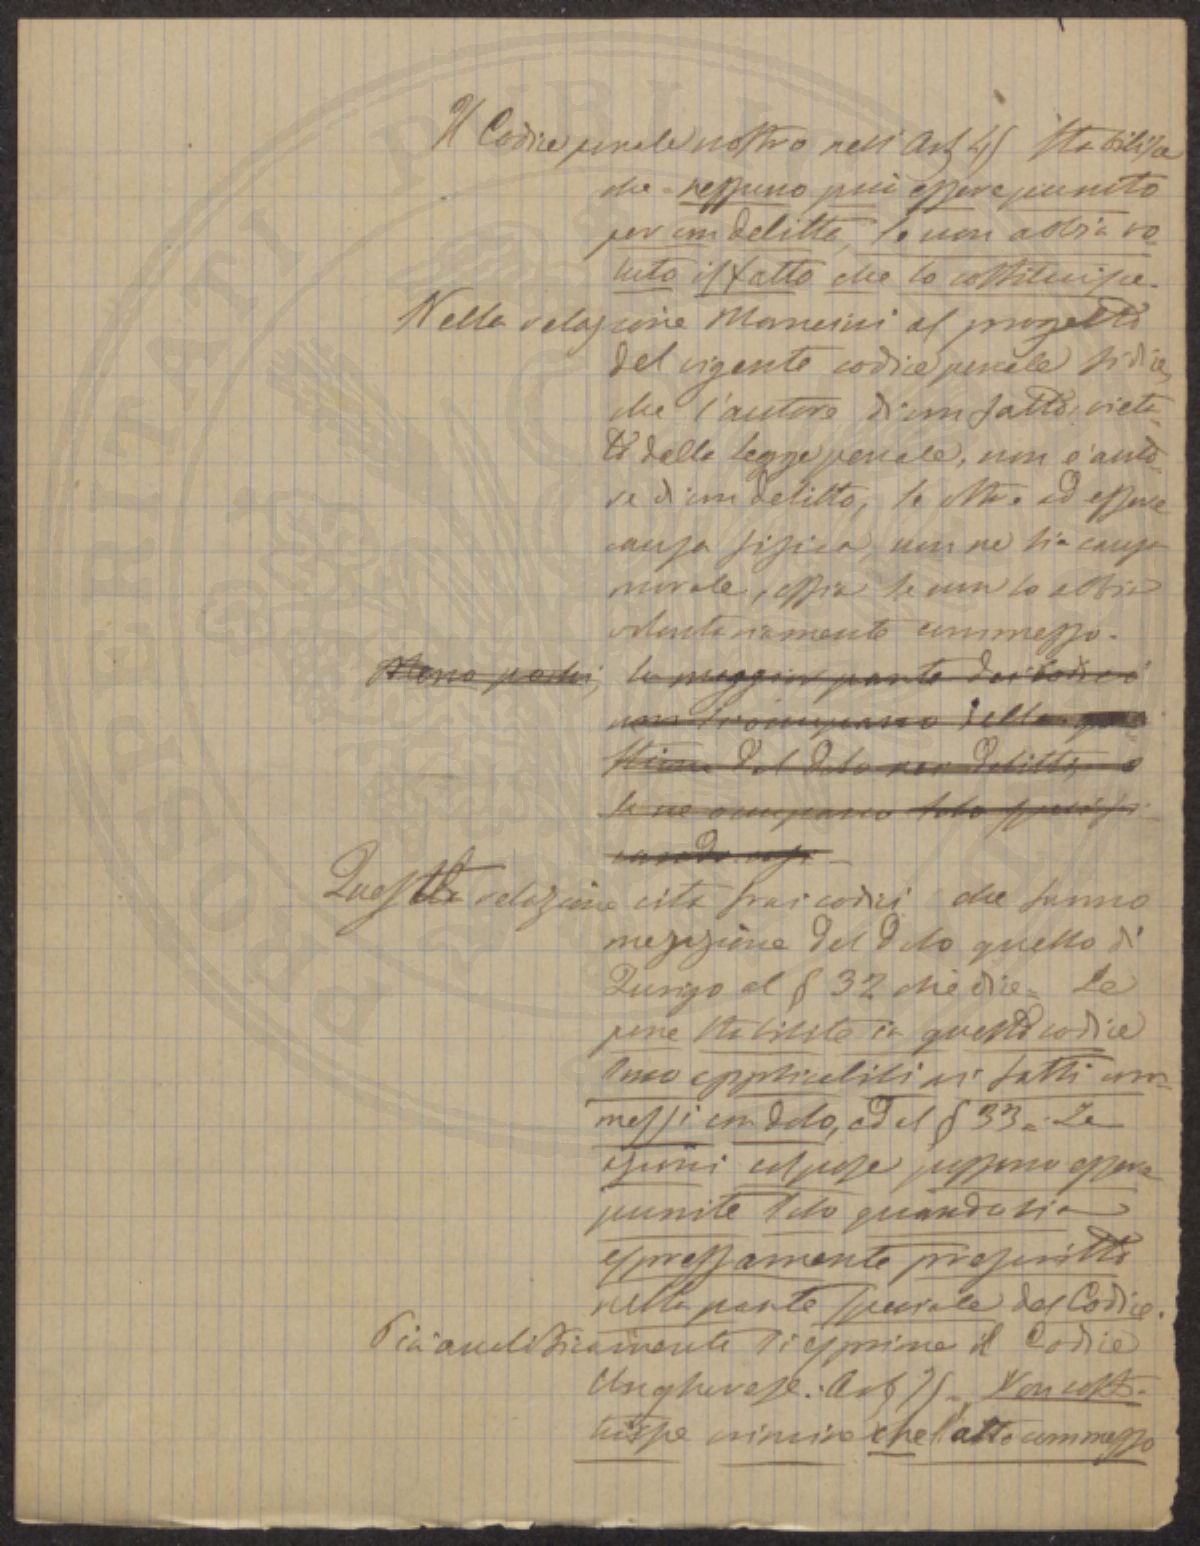 Il Codice penale nostro nell'Art 45 stabilisce
che = nessuno può essere punito
per un delitto, se non abbia vo-
luto il fatto che lo costituisce.
Nella relazione Mancini al progetto
del vigente codice penale si dice
che l'autore di un fatto vieta-
to dalla legge penale, non è auto-
re di un delitto, se oltre ad essere
causa fisica, non ne sia causa
morale, ossia se non lo abbia
volontariamente commesso.
Meno pochi, la maggior parte dei Codici
non si occupano della que-
stione del dolo nei delitti, o
se ne occupano solo specifi-
cando
Questa relazione cita fra i codici che fanno
menzione del dolo quello di
Zurigo al § 32 che dice = Le
pene stabilite in questo codice
sono applicabili ai fatti com-
messi con dolo, ed al § 33 = Le
azioni colpose possono essere
punite solo quando sia
espressamente prescritto
nella parte speciale del Codice.
Più analiticamente si esprime il Codice
Ungherese. Art 75 = Non costi-
tuisce crimine che l'atto commesso